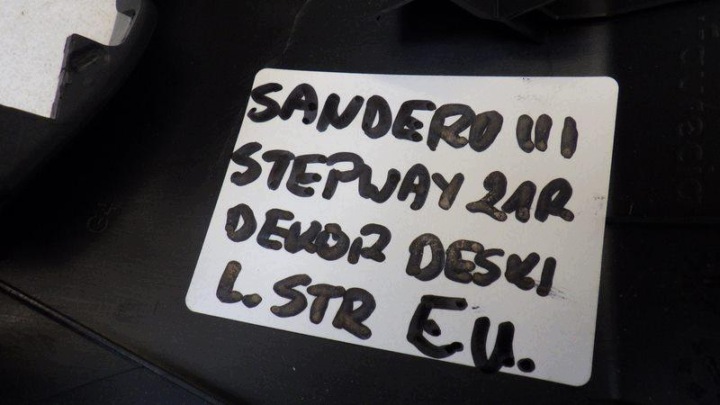 SANDERO III
STEPWAY 21R
DEKOR DESKI
L. STR EU.